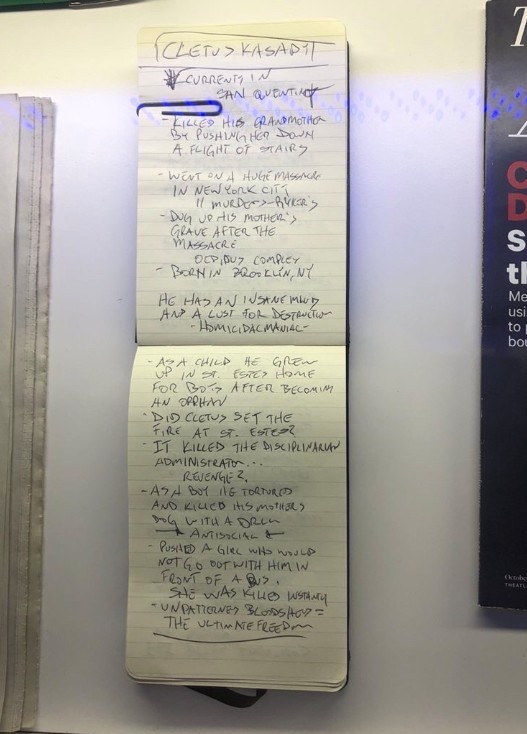 CLETUS KASADY
* CURRENTS IN
SAN QUENTIN *
- KILLED HIS GRANDMOTHER
BY PUSHING HER DOWN
A FLIGHT OF STAIRS
- WENT ON A HUGE MASSACRE
IN NEW YORK CITY
11 MURDERS - RIKER'S
- DUG UP HIS MOTHER'S
GRAVE AFTER THE
MASSACRE
OEDIPUS COMPLEX
- BORN IN BROOKLYN, NY
HE HAS AN INSANE MIND
AND A LUST FOR DESTRUCTION
- HOMICIDAL MANIAC -
- AS A CHILD HE GREW
UP IN ST. ESTES HOME
FOR BOYS AFTER BECOMING
AN ORPHAN
- DID CLETUS SET THE
FIRE AT ST. ESTES?
- IT KILLED THE DISCIPLINARIAN
ADMINISTRATOR...
REVENGE?
- AS A BOY HE TORTURED
AND KILLED HIS MOTHERS
DOG WITH A DRILL
* ANTISOCIAL *
- PUSHED A GIRL WHO WOULD
NOT GO OUT WITH HIM IN
FRONT OF A BUS.
SHE WAS KILLED INSTANTLY
- UNPATTERNED BLOODSHED =
THE ULTIMATE FREEDOM
T
C
D
S
th
Me
usi
to
bou
Octobe
THEATL